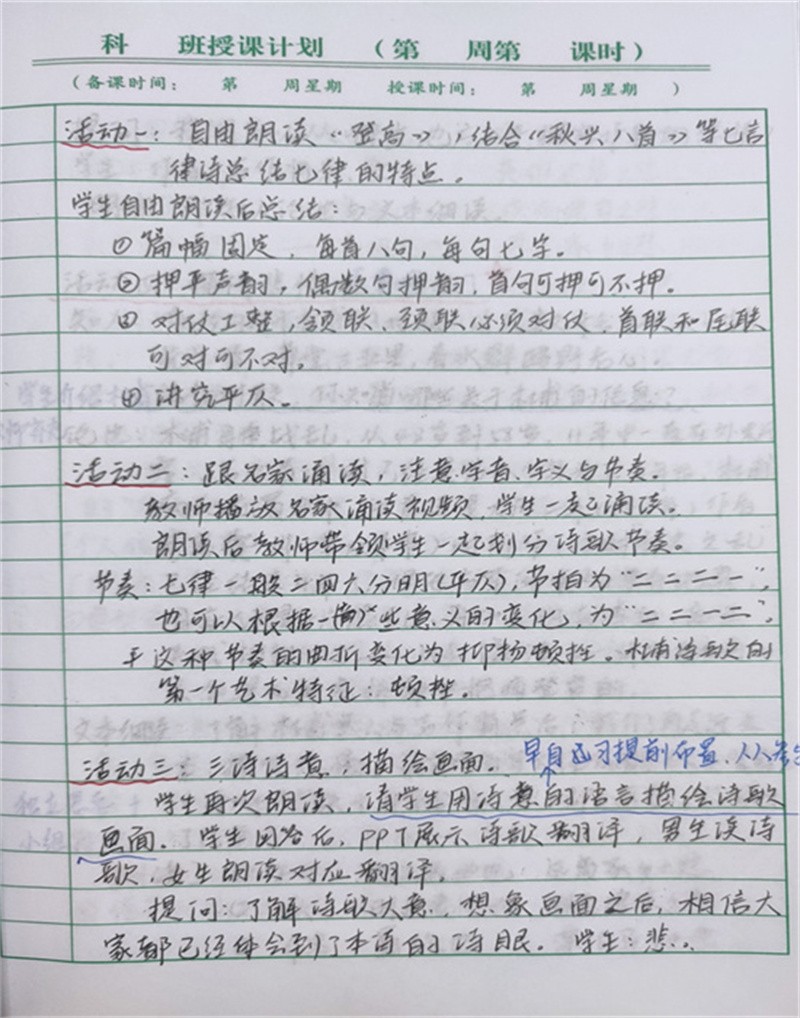 科 班授课计划 (第 周第 课时)
(备课时间: 第 周星期 授课时间: 第 周星期 )
活动一: 自由朗读《登高》,结合《秋兴八首》等七言
律诗总结七律的特点。
学生自由朗读后总结:
① 篇幅固定,每首八句,每句七字。
② 押平声韵,偶数句押韵,首句可押可不押。
④ 对仗工整,颔联、颈联必须对仗,首联和尾联
可对可不对。
④ 讲究平仄。
活动二: 跟名家诵读,注意字音、字义与节奏。
教师播放名家诵读视频,学生一起诵读。
朗读后教师带领学生一起划分诗歌节奏。
节奏: 七律一般二四六分明(平仄),节拍为“二二二一”,
也可以根据一些意义的变化,为“二二一二”,
这种节奏的曲折变化为抑扬顿挫。杜甫诗歌的
第一个艺术特征: 顿挫。
早自习提前布置,人人
活动三: 诗诗意,描绘画面。
学生再次朗读,请学生用诗意的语言描绘诗歌
画面。学生回答后,PPT展示诗歌翻译,男生读诗
歌,女生朗读对应翻译。
提问: 了解诗歌大意,想象画面之后,相信大
家都已经体会到了本诗的诗眼。学生: 悲。